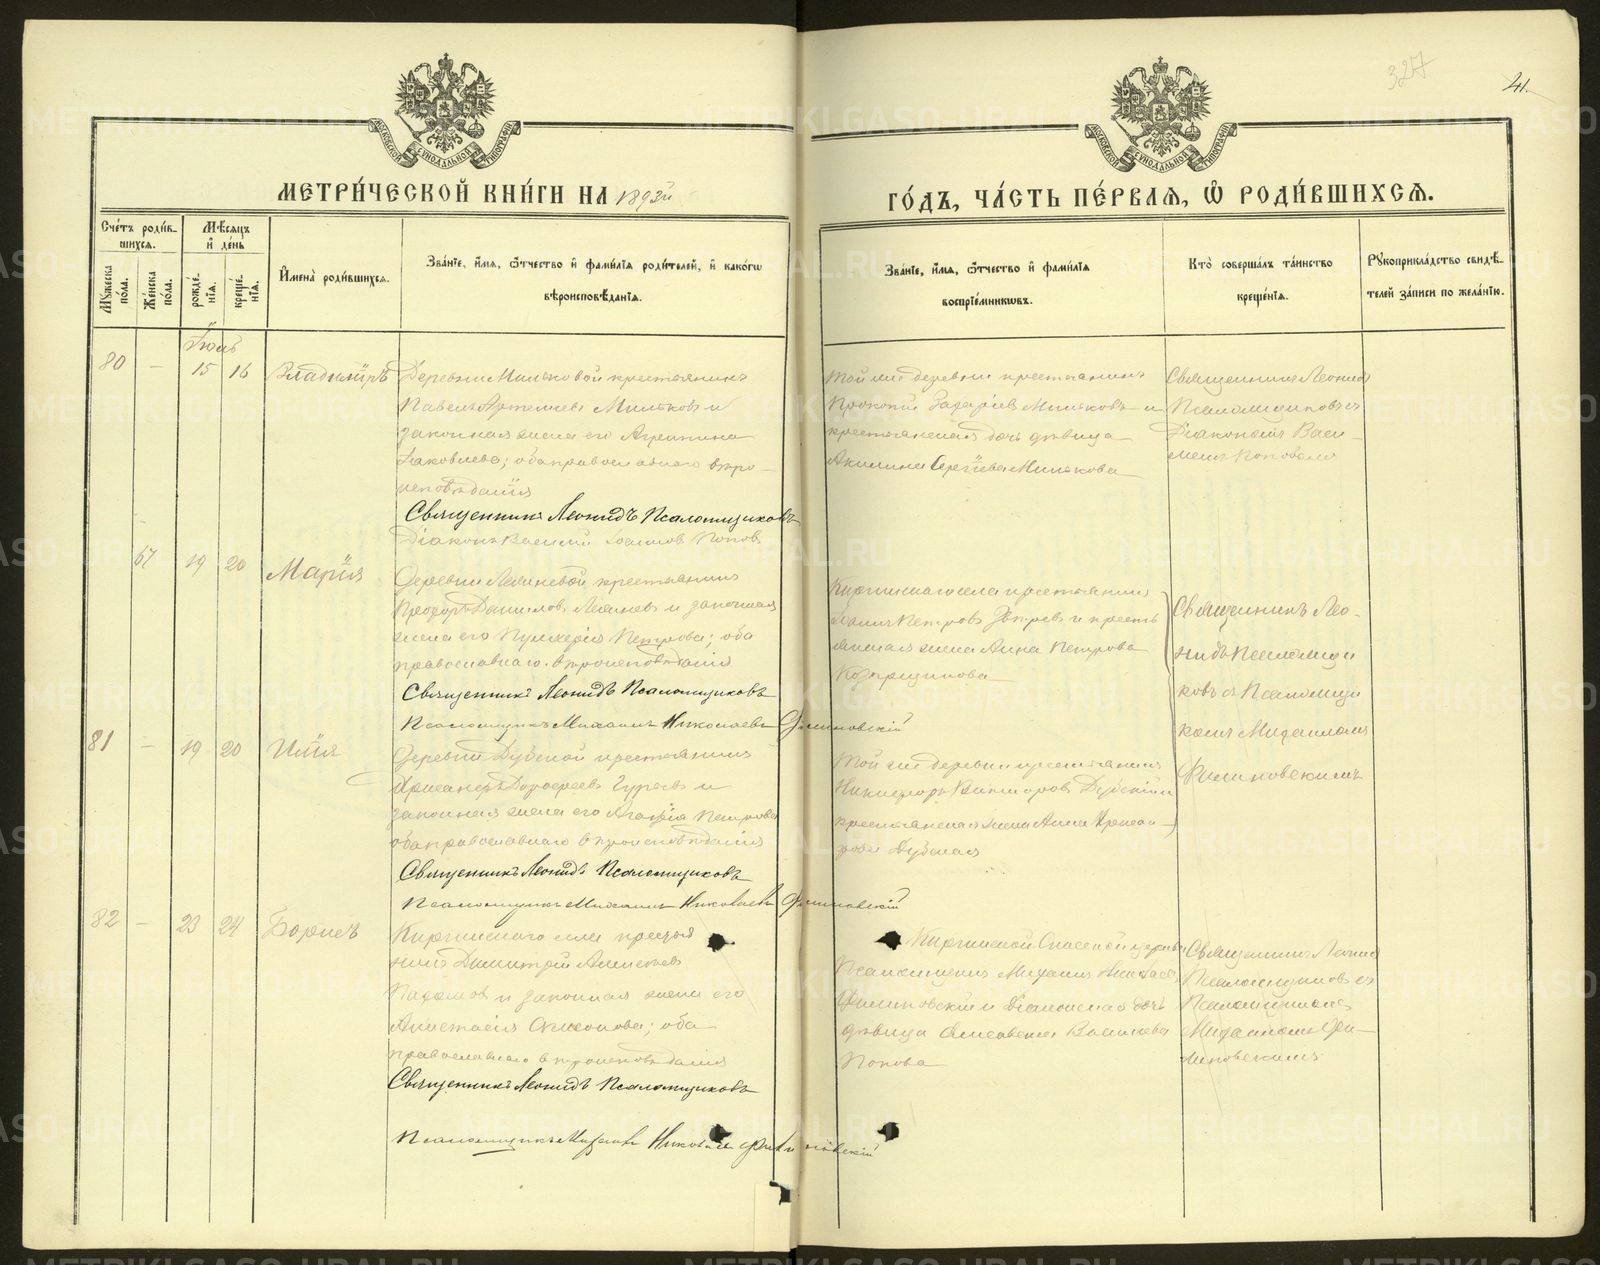 327
41.
МОСКОВСКОЙ СѴНОДАЛЬНОЙ ТИПОГРАФІИ
МОСКОВСКОЙ СѴНОДАЛЬНОЙ ТИПОГРАФІИ
МЕТРИ́ЧЕСКОЙ КНИ́ГИ НА 1893й
ГО́ДЪ, ЧА́СТЬ ПЕ́РВАѦ, Ѡ҆ РОДИ́ВШИХСѦ.
Сче́тъ роди́в-
шихсѧ.
Мѣ́сѧцъ
и҆ де́нь
Му́жеска
по́ла.
Же́нска
по́ла.
рожде́-
нїѧ.
креще́-
нїѧ.
И҆мена̀ роди́вшихсѧ.
Зва́нїе, и҆́мѧ, ѻ҆́тчество и҆ фами́лїѧ роди́телей, и҆ како́гѡ
вѣроисповѣ́данїѧ.
Зва́нїе, и҆́мѧ, ѻ҆́тчество и҆ фами́лїѧ
воспрїе́мникѡвъ.
Кто̀ соверша́лъ та́инство
креще́нїѧ.
Рꙋкоприкла́дство свидѣ́-
телей за́писи по жела́нїю.
Іюль
80 — 15 16 Владиміръ
Деревни Мильковой крестьянинъ
Павелъ Артемьевъ Мильковъ и
законная жена его Агрипина
Іаковлева; оба православнаго вѣро-
исповѣданія
Священникъ Леонидъ Псаломщиковъ
Діаконъ Василій Іоанновъ Поповъ
Той же деревни крестьянинъ
Прокопій Захаріевъ Мильковъ и
крестьянская дочь дѣвица
Акилина Сергіева Милькова
Священникъ Леонидъ
Псаломщиковъ съ
Діакономъ Васи-
ліемъ Поповымъ
67 19 20 Марія
Деревни Ляпневой крестьянинъ
Ѳеодоръ Даниловъ и законная
жена его Пульхерія Петрова; оба
православнаго вѣроисповѣданія
Священникъ Леонидъ Псаломщиковъ
Псаломщикъ Михаилъ Николаевъ Филиновскій
Киргишанскаго села крестьянинъ
Петровъ и кресть-
янская жена Анна Петрова
Священникъ Лео-
нидъ Псаломщи-
ковъ съ Псаломщи-
комъ Михаиломъ
Филиновскимъ
81 — 19 20 Илія
Деревни Дубской крестьянинъ
Дороѳеевъ и
законная жена его Агафія Петрова
оба православнаго вѣроисповѣданія
Священникъ Леонидъ Псаломщиковъ
Псаломщикъ Михаилъ Николаевъ Филиновскій
Той же деревни крестьянинъ
Никифоръ Викторовъ Дубскій и
крестьянская жена Анна
Дубская
82 — 23 24 Борисъ
села крестья-
нинъ Димитрій Алексѣевъ
Пахомовъ и законная жена его
Анастасія; оба
православнаго вѣроисповѣданія
Священникъ Леонидъ Псаломщиковъ
Псаломщикъ Михаилъ Николаевъ Филиновскій
Спасской церкви
Псаломщикъ Михаилъ Николаевъ
Филиновскій и Діаконская дочь
дѣвица Елисавета Васильева
Попова
Священникъ Леонидъ
Псаломщиковъ съ
Псаломщикомъ
Михаиломъ Фи-
линовскимъ
METRIKI.GASO-URAL.RU